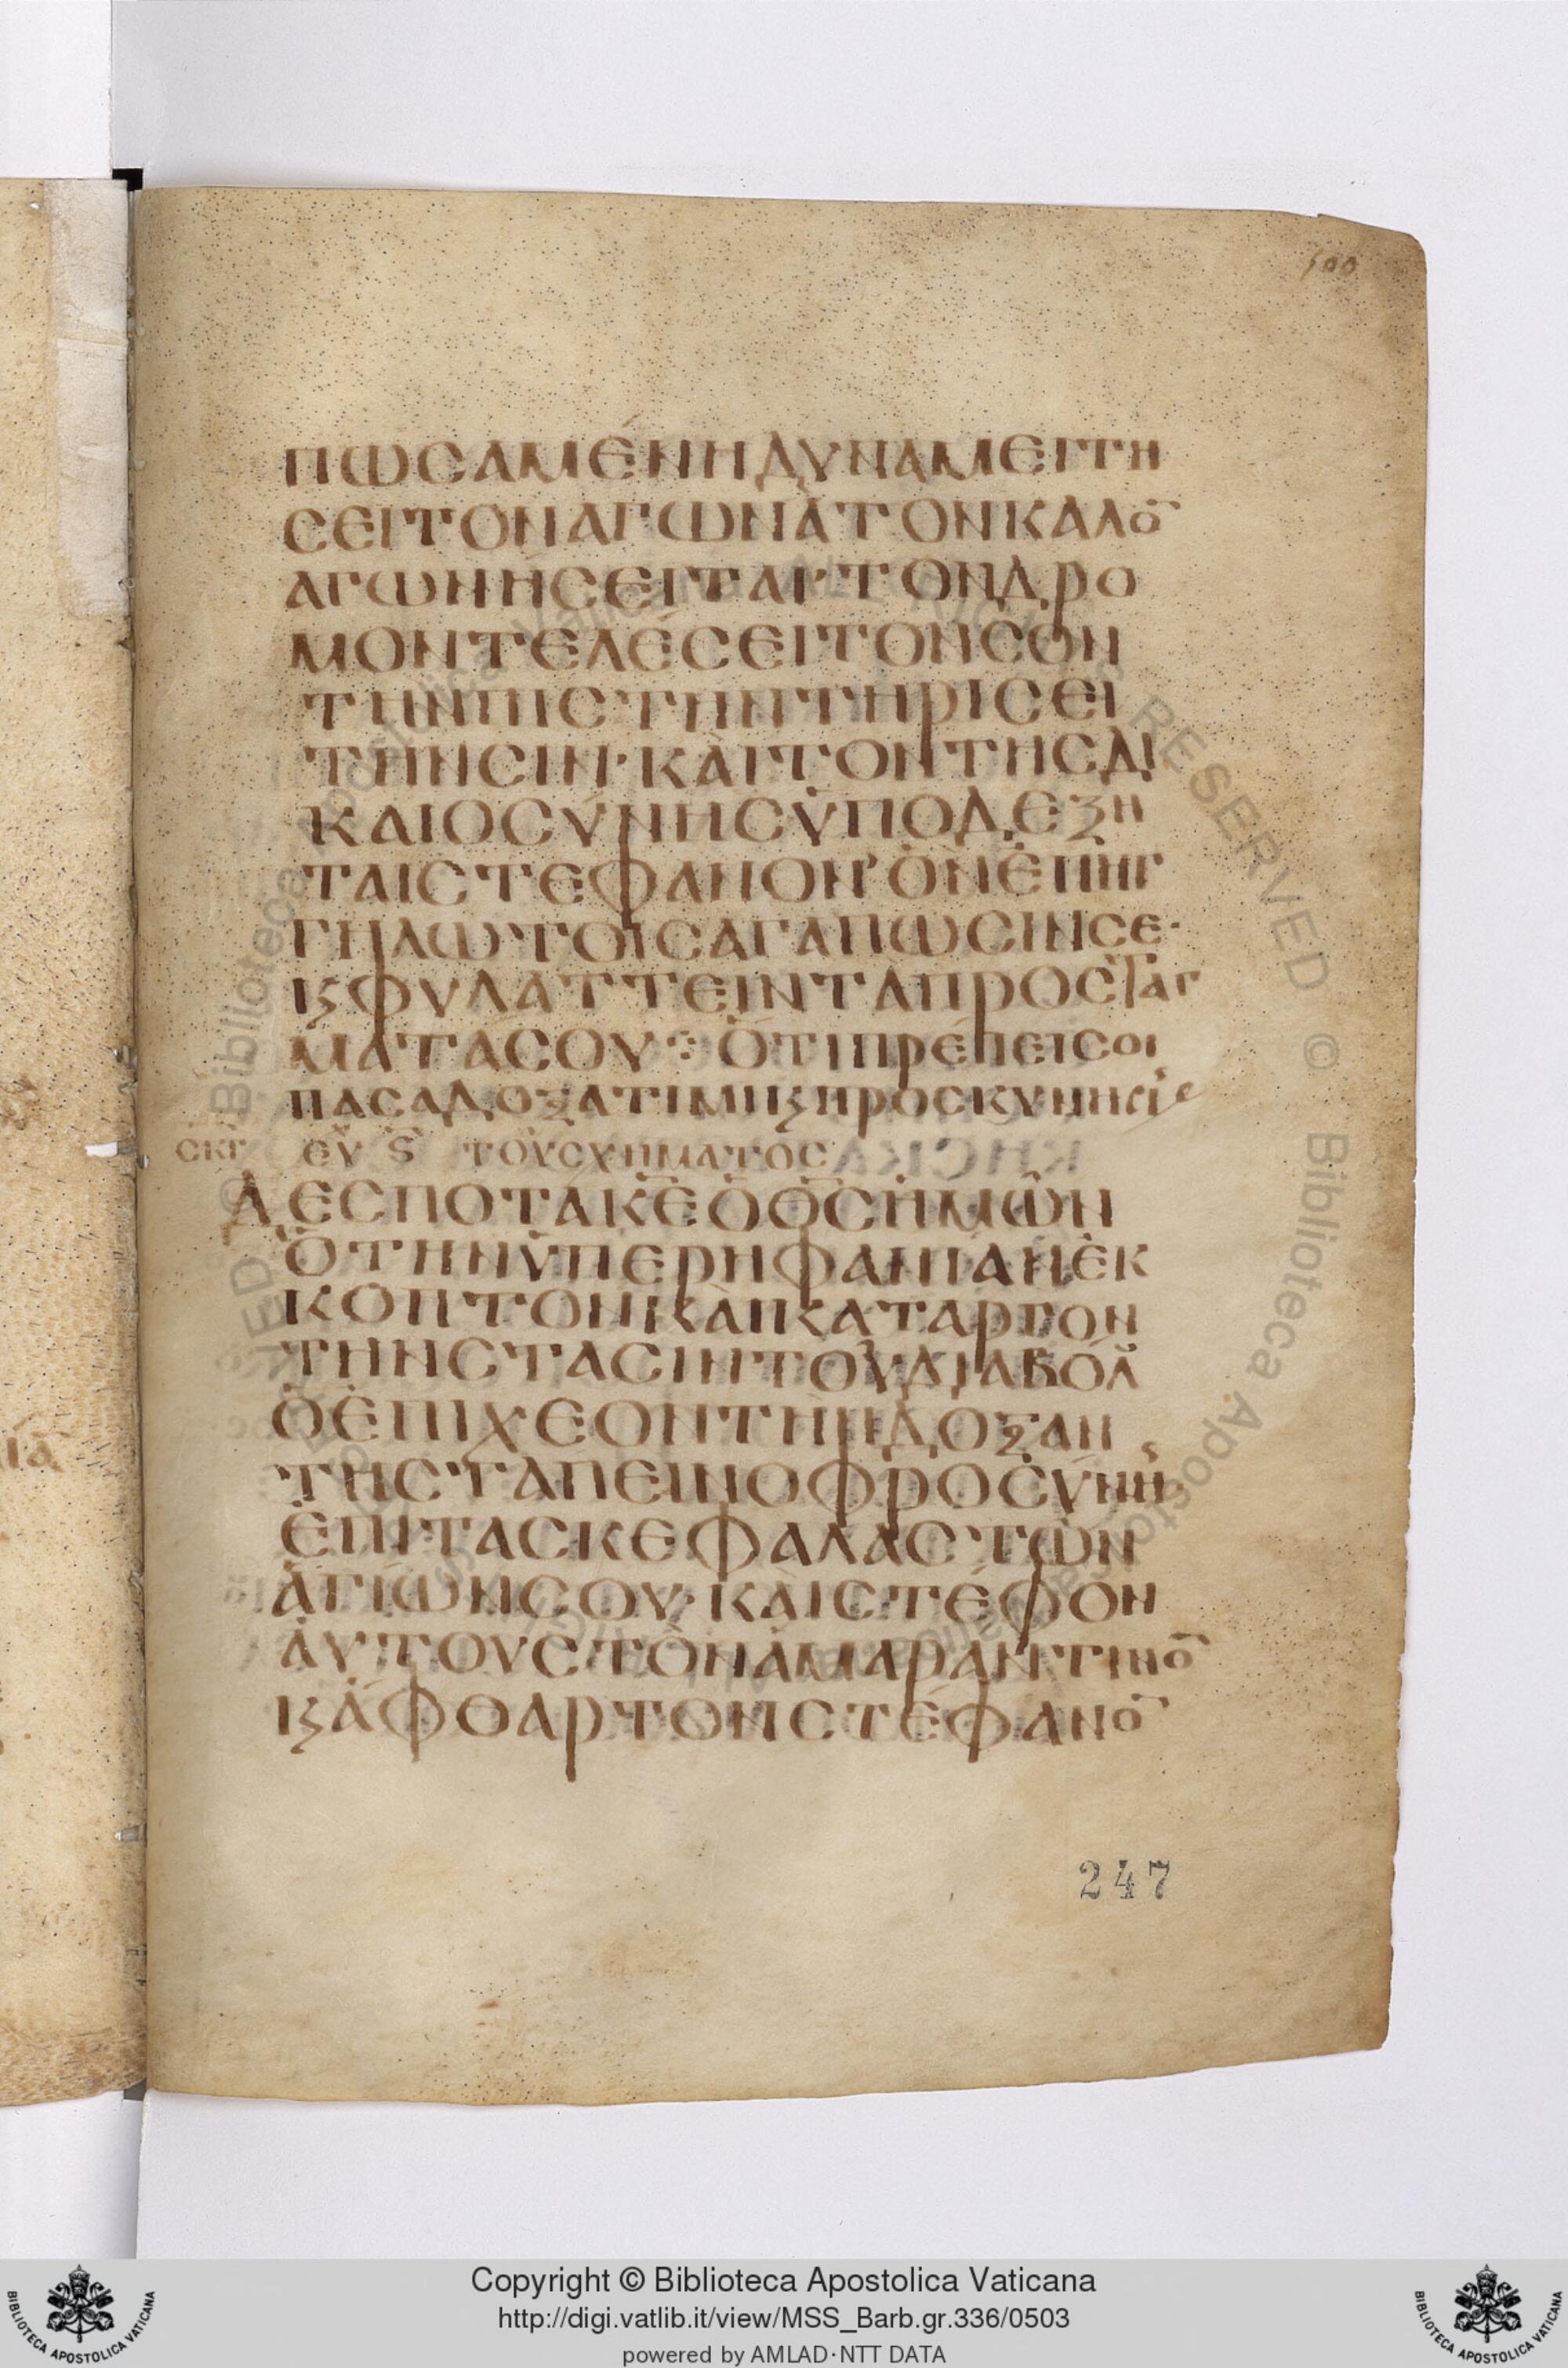 500
ΠωCΑΜΈΝΗΔΥΝΑΜΕΙΤΗ
CΕΙΤΟΝΑΓωΝΑΤΟΝΚΑΛΟ̄
ΑΓωΝΗCΕΙΤΑΙ·ΤΟΝΔΡΟ
ΜΟΝΤΕΛΈCΕΙΤΟΝCΟΝ
ΤΗΝΠΙCΤΗΝΤΗΡΙCΕΙ
ΤΗΝCΙΝ·ΚΑΙΤΟΝΤΗCΔΙ
ΚΑΙΟCΥΝΗCΥΠΟΔΕΞΗ
ΤΑΙCΤΕΦΑΝΟΝ·ὍΝἘΠΗΓ
ΓΗΛωΤΟΙCΑΓΑΠωCΙΝCΕ·
ΚϚΦΥΛΑΤΤΕΙΝΤΑΠΡΟCΤΑΓ
ΜΑΤΆCΟΥ ⁘ ὍΤΙΠΡΈΠΕΙCΟΙ
ΠΑCΑΔΟΞΑΤΙΜΗΚϚΠΡΟCΚΥΝΗCΙC
CΚΓ ΕΥ Ϛ ΤΟΥCΧΗΜΑΤΟC
ΔΕCΠΟΤΑΚΕ̄ὉΘ̄CἩΜῶΝ
ὉΤΗΝὙΠΕΡΗΦΑΝΙΑΝἘΚ
ΚΟΠΤΟΝΚΑΙΚΑΤΑΡΓΟΝ
ΤΗΝCΤΑCΙΝΤΟΥΔΙΑΒΌΛΟΥ
ὉἘΠΙΧΕΟΝΤΗΝΔΟΞΑΝ
ΤΗCΤΑΠΕΙΝΟΦΡΟCΎΝΗC
ἘΠΙΤΑCΚΕΦΑΛΑCΤῶΝ
ἉΓΙωΝCΟΥ·ΚΑΙCΤΈΦΟΝ
ΑΥΤΟΥCΤΟΝΑΜΑΡΑΝΤΙΝΟ̄
ΚϚἈΦΘΑΡΤΟΝCΤΈΦΑΝΟ̄
247
Copyright © Biblioteca Apostolica Vaticana
http://digi.vatlib.it/view/MSS_Barb.gr.336/0503
powered by AMLAD·NTT DATA
BIBLIOTECA APOSTOLICA VATICANA
BIBLIOTECA APOSTOLICA VATICANA